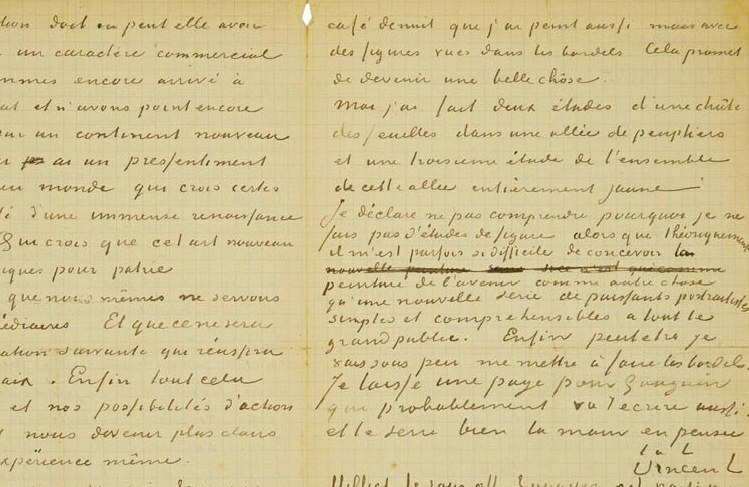 tion dont on peut elle avoir
un caractère commercial
mmes encore arrivé à
at et n'avons point encore
sur un continent nouveau
ai un pressentiment
au monde qui crois certes
té d'une immense renaissance
Qui crois que cet art nouveau
iques pour patrie
que nous mêmes ne servons
édiaires Et que ce ne sera
ation suivante qui réussira
aix. Enfin tout cela
et nos possibilités d'action
nous devenir plus clairs
expérience même.
café de nuit que j'ai peint aussi mais avec
des figures vues dans les bordels Cela promet
de devenir une belle chôse.
Moi j'ai fait deux études d'une chûte
des feuilles dans une allée de peupliers
et une troisieme étude de l'ensemble
de cette allee entièrement jaune
Je déclare ne pas comprendre pourquoi je ne
fais pas d'études de figure alors que théoriquement
il m'est parfois si difficile de concevoir la
peinture de l'avenir comme autre chose
qu'une nouvelle serie de puissants portraitistes
simples et comprehensibles a tout le
grand public. Enfin peutetre je
vais sous peu me mettre à faire les bordels.
Je laisse une page pour Gauguin
qui probablement va t'ecrire aussi
et te serre bien la main en pensée
t.à.t.
Vincent
Milliet